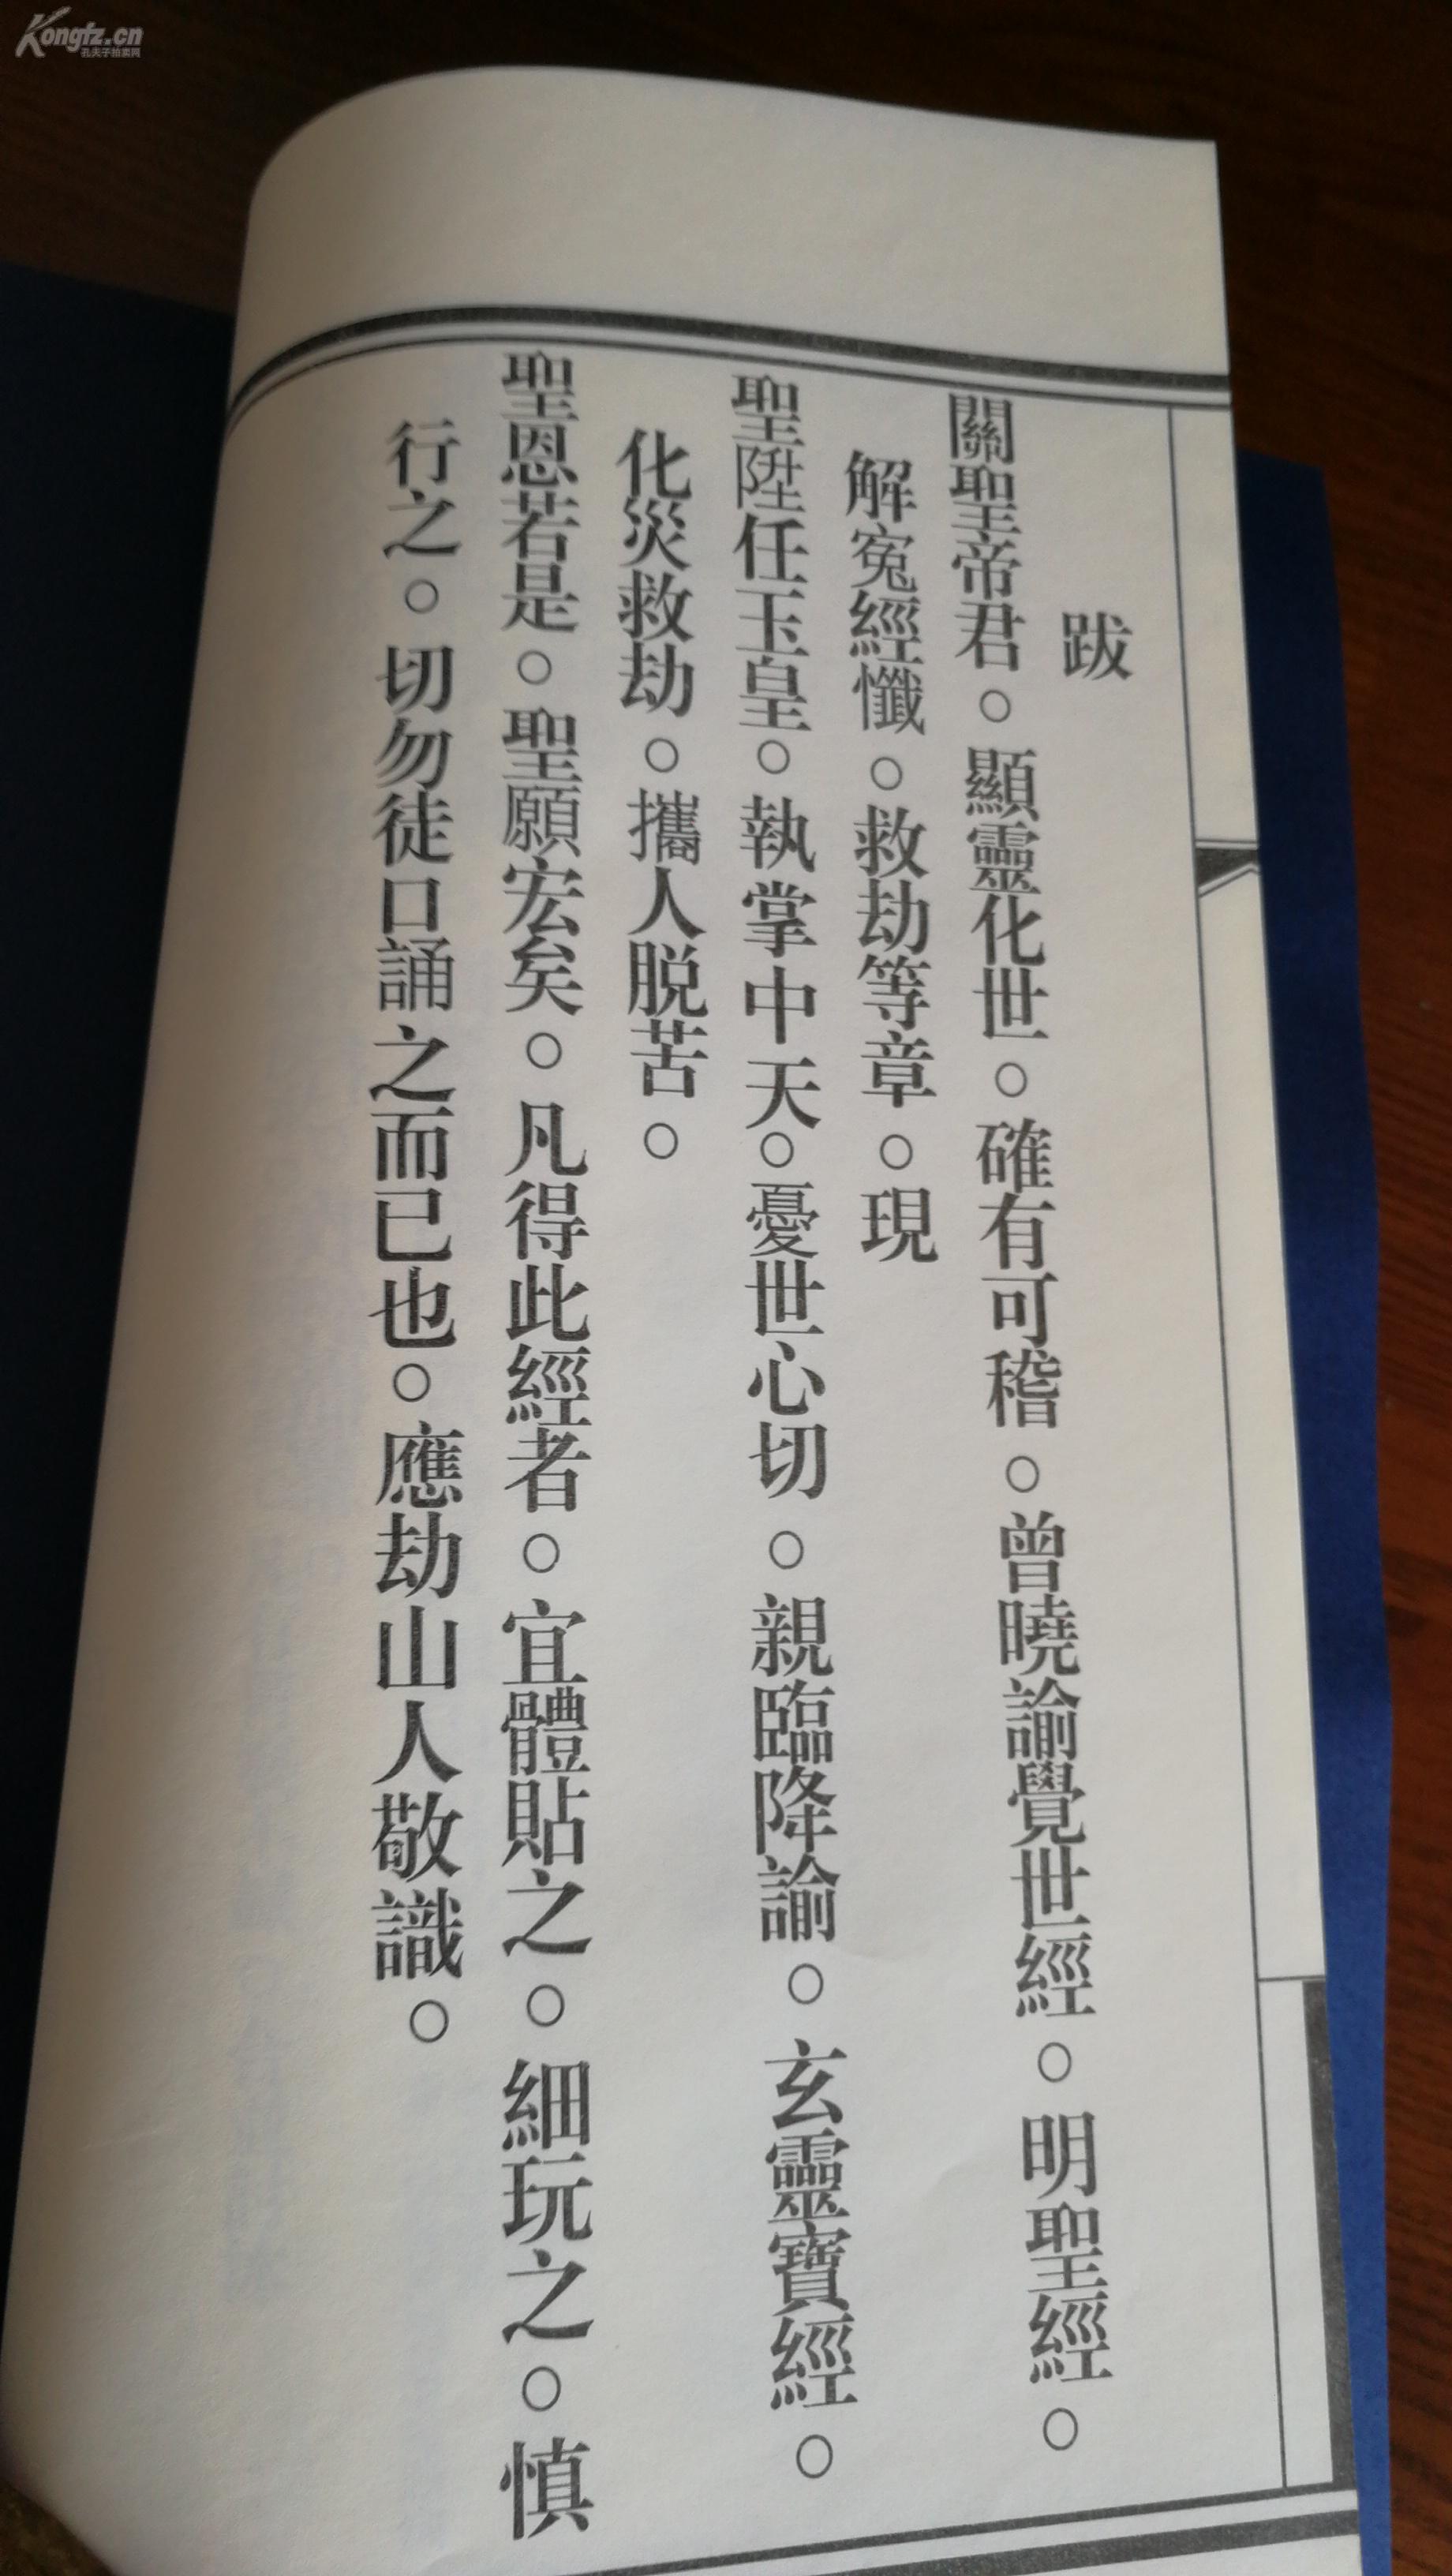 跋
關聖帝君。顯靈化世。確有可稽。曾曉諭覺世經。明聖經。
解寃經懺。救劫等章。現
聖陞任玉皇。執掌中天。憂世心切。親臨降諭。玄靈寶經。
化災救劫。攜人脱苦。
聖恩若是。聖願宏矣。凡得此經者。宜體貼之。細玩之。慎
行之。切勿徒口誦之而已也。應劫山人敬識。
Kongfz.cn
孔夫子拍卖网